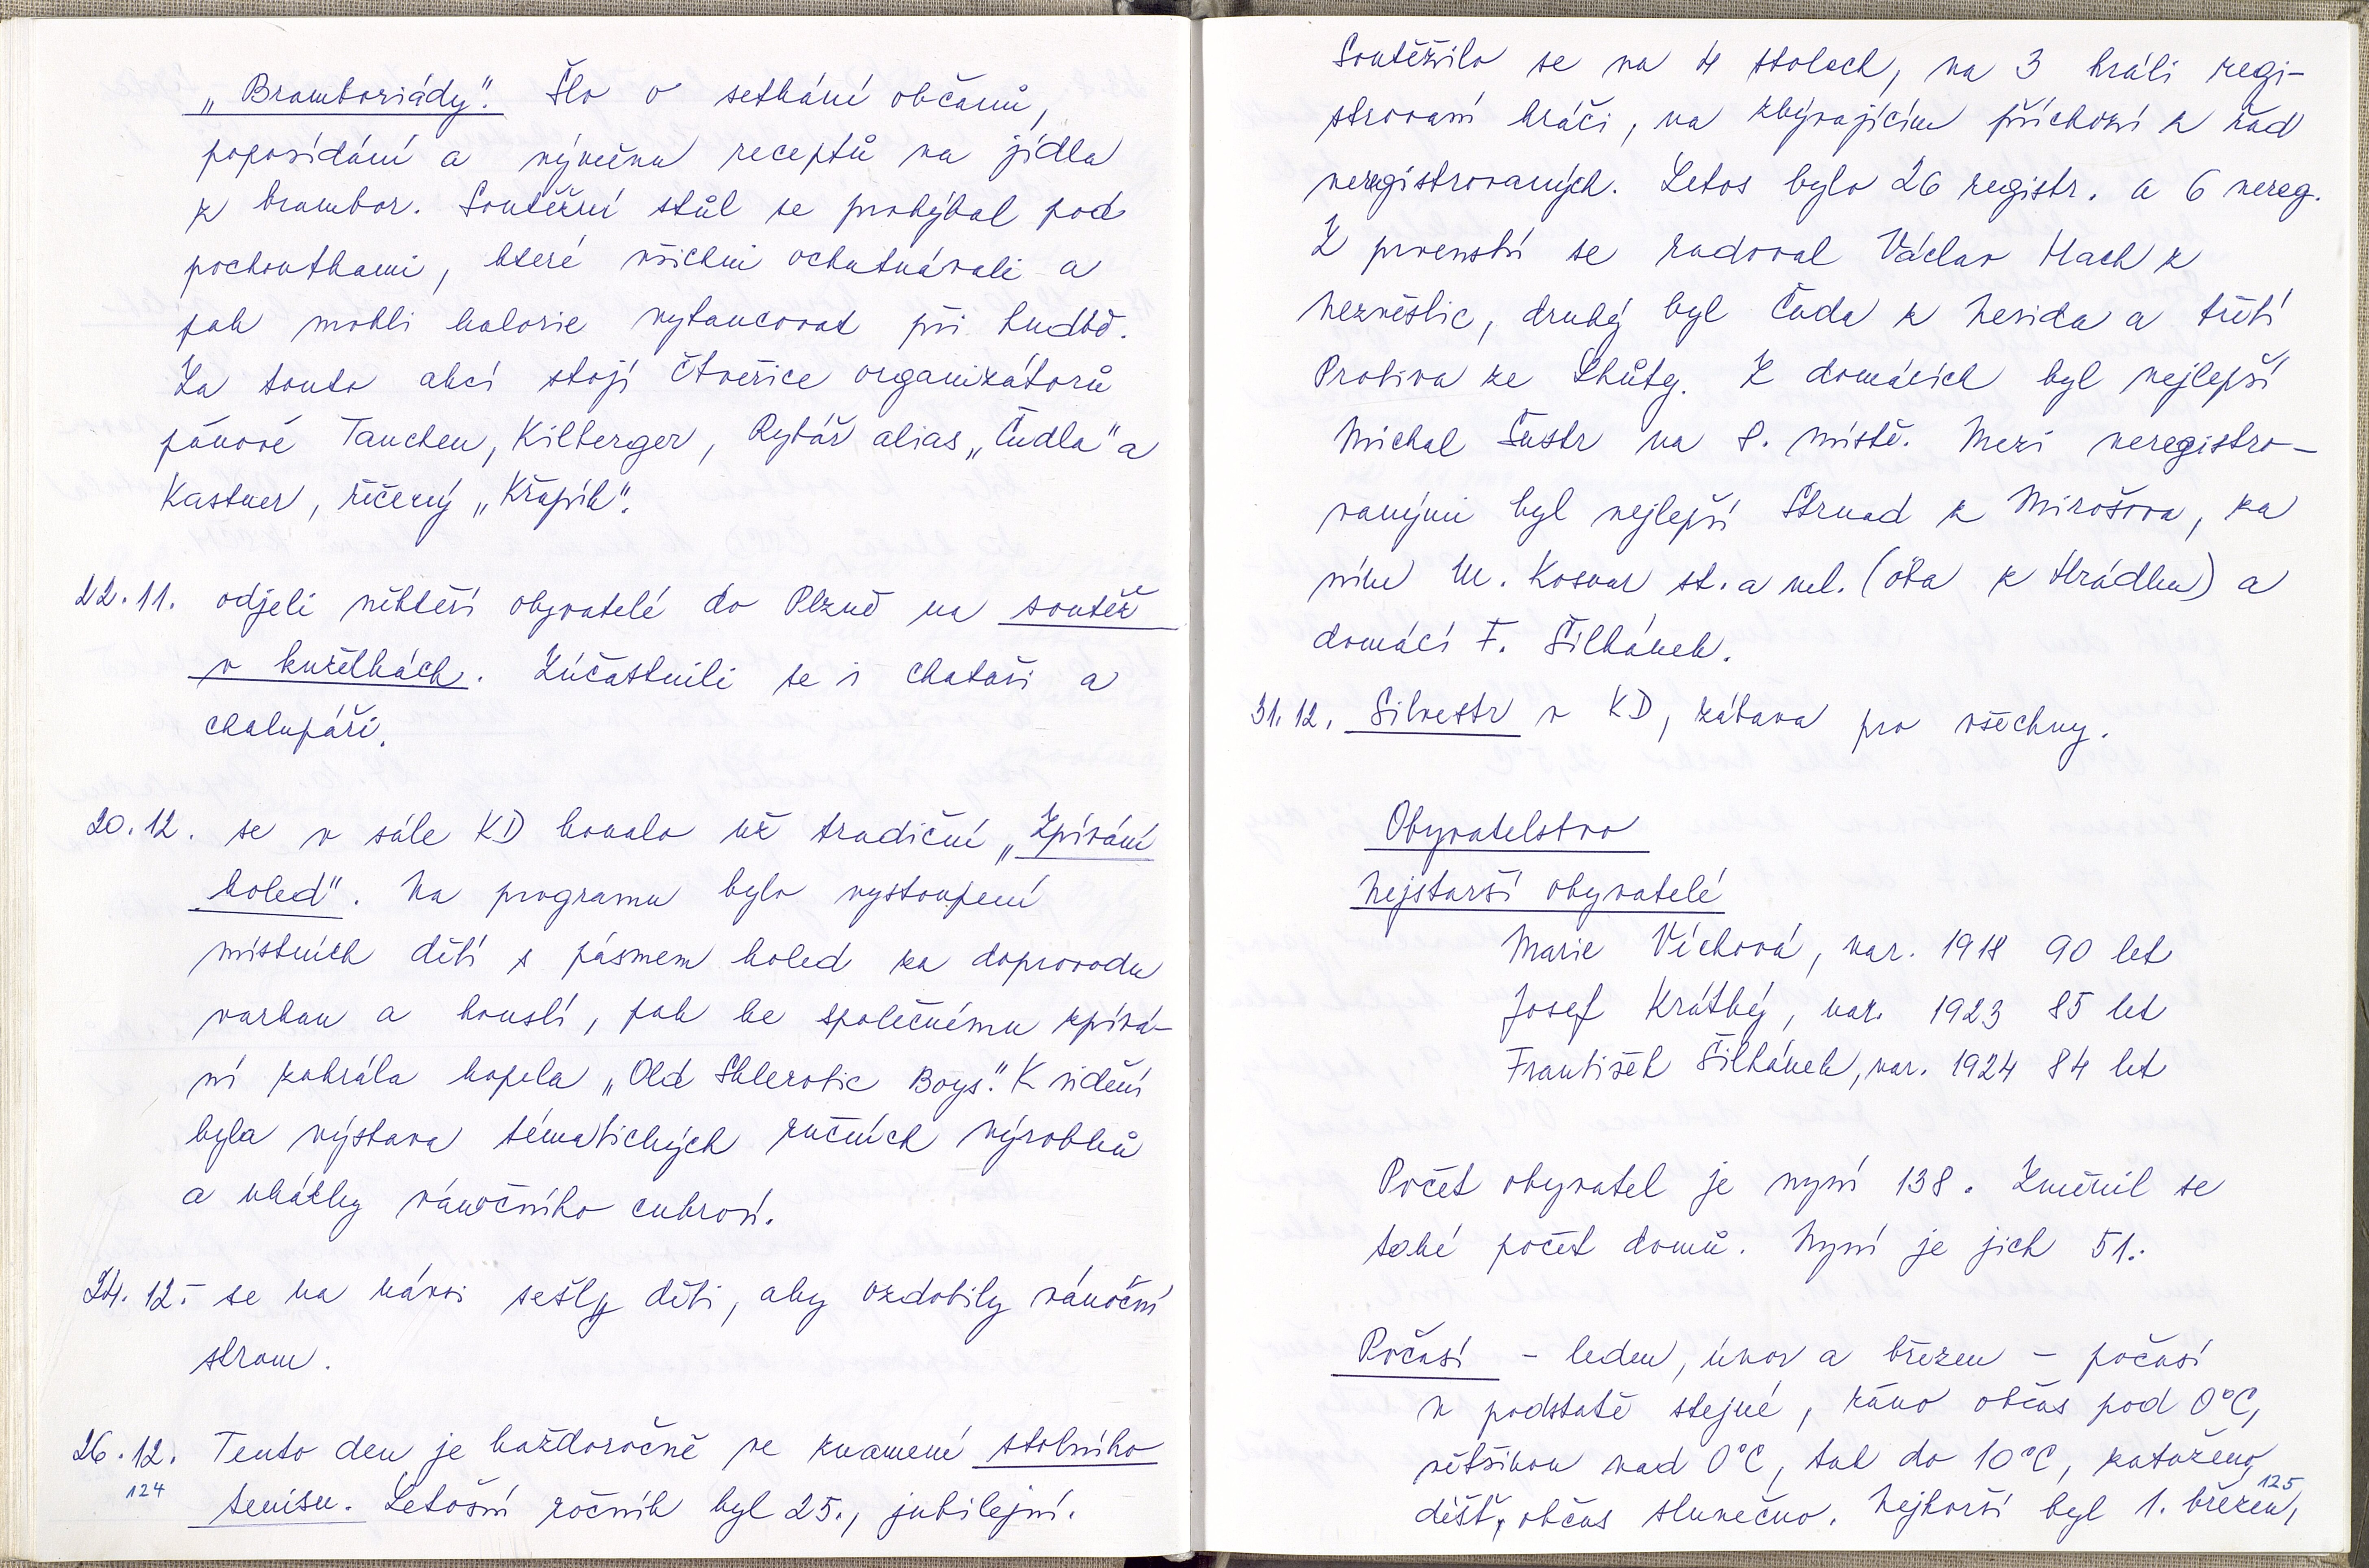 „Bramboriády". Šlo o setkání občanů,
poposídání a výměnu receptů na jídla
z brambor. Soutěžní stůl se prohýbal pod
pochoutkami, které všichni ochutnávali a
pak mohli kalorie vytancovat při hudbě.
Za touto akcí stojí čtveřice organizátorů
pánové Tauchen, Kilberger, Rybář alias „Čudla" a
Kastner, řečený „Křapík".
22.11. odjeli někteří obyvatelé do Plzně na soutěž
v kuželkách. Zúčastnili se i chataři a
chalupáři.
20.12. se v sále KD konalo už tradiční „Zpívání
koled". Na programu bylo vystoupení
místních dětí s pásmem koled za doprovodu
varhan a houslí, pak ke společnému zpívá-
ní zahrála kapela „Old Sklerotic Boys". K vidění
byla výstava tématických ručních výrobků
a ukázky vánočního cukroví.
24.12. se na návsi sešly děti, aby ozdobily vánoční
strom.
26.12. Tento den je každoročně ve znamení stolního
124
tenisu. Letošní ročník byl 25., jubilejní.
Soutěžilo se na 4 stolech, na 3 hráli regi-
strovaní hráči, na zbývajícím příchozí z řad
neregistrovaných. Letos bylo 26 registr. a 6 nereg.
Z prvenství se radoval Václav Hach z
Nezvěstic, druhý byl Čada z Nevida a třetí
Protiva ze Lhůty. Z domácích byl nejlepší
Michal Šustr na 8. místě. Mezi neregistro-
vanými byl nejlepší Strnad z Mirošova, za
ním M. Kosnar st. a ml. (oba z Hrádku) a
domácí F. Šilhánek.
31.12. Silvestr v KD, zábava pro všechny.
Obyvatelstvo
Nejstarší obyvatelé
Marie Víchová, nar. 1918 90 let
Josef Krátký, nar. 1923 85 let
František Šilhánek, nar. 1924 84 let
Počet obyvatel je nyní 138. Změnil se
také počet domů. Nyní je jich 51.
Počasí - leden, únor a březen - počasí
v podstatě stejné, ráno občas pod 0°C,
většinou nad 0°C, tak do 10°C, zataženo,
125
déšť, občas slunečno. Nejhorší byl 1. březen,